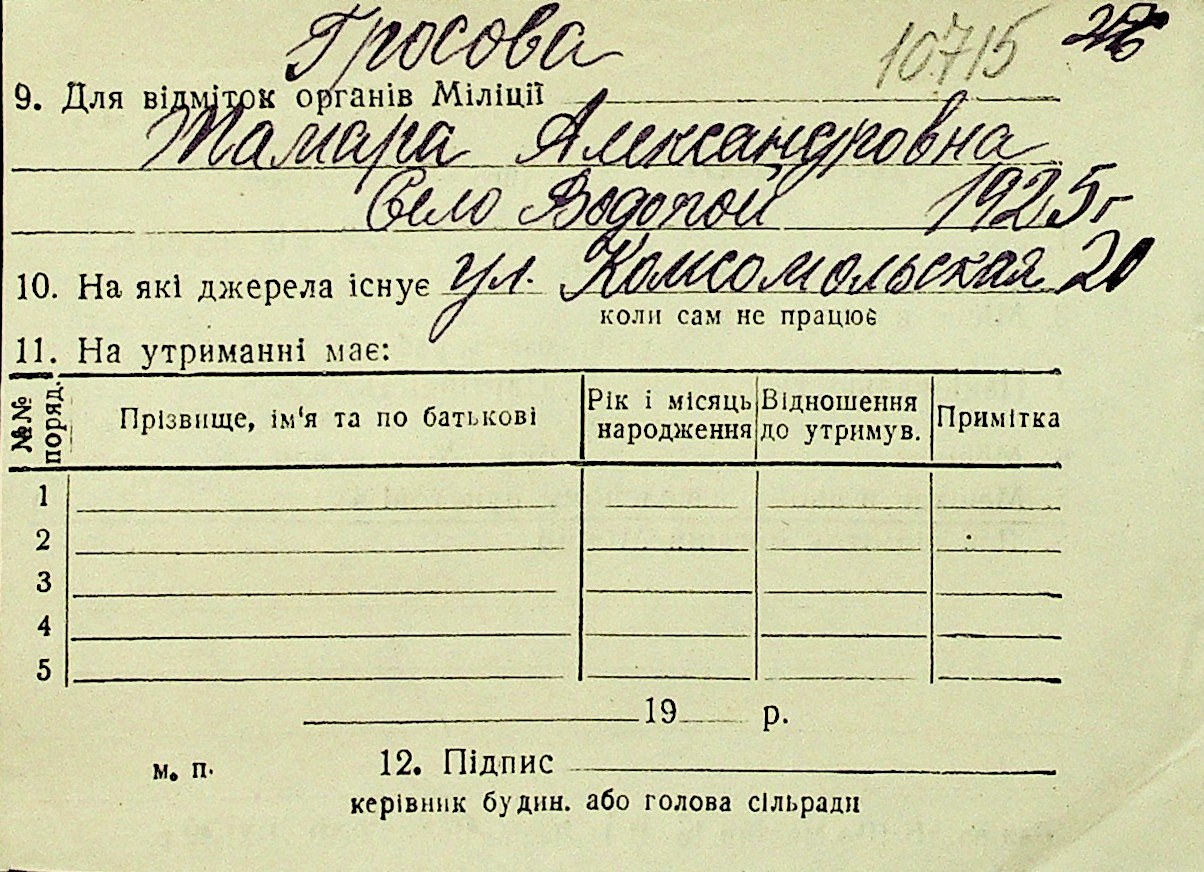 Гросова 10715
9. Для відміток органів Міліції
Тамара Александровна
Село Водопой 1925 г
10. На які джерела існує ул. Комсомольская 20
коли сам не працює
11. На утриманні має:
№№ поряд. Прізвище, ім'я та по батькові Рік і місяць народження Відношення до утримув. Примітка
1
2
3
4
5
19 р.
м. п. 12. Підпис
керівник будин. або голова сільради